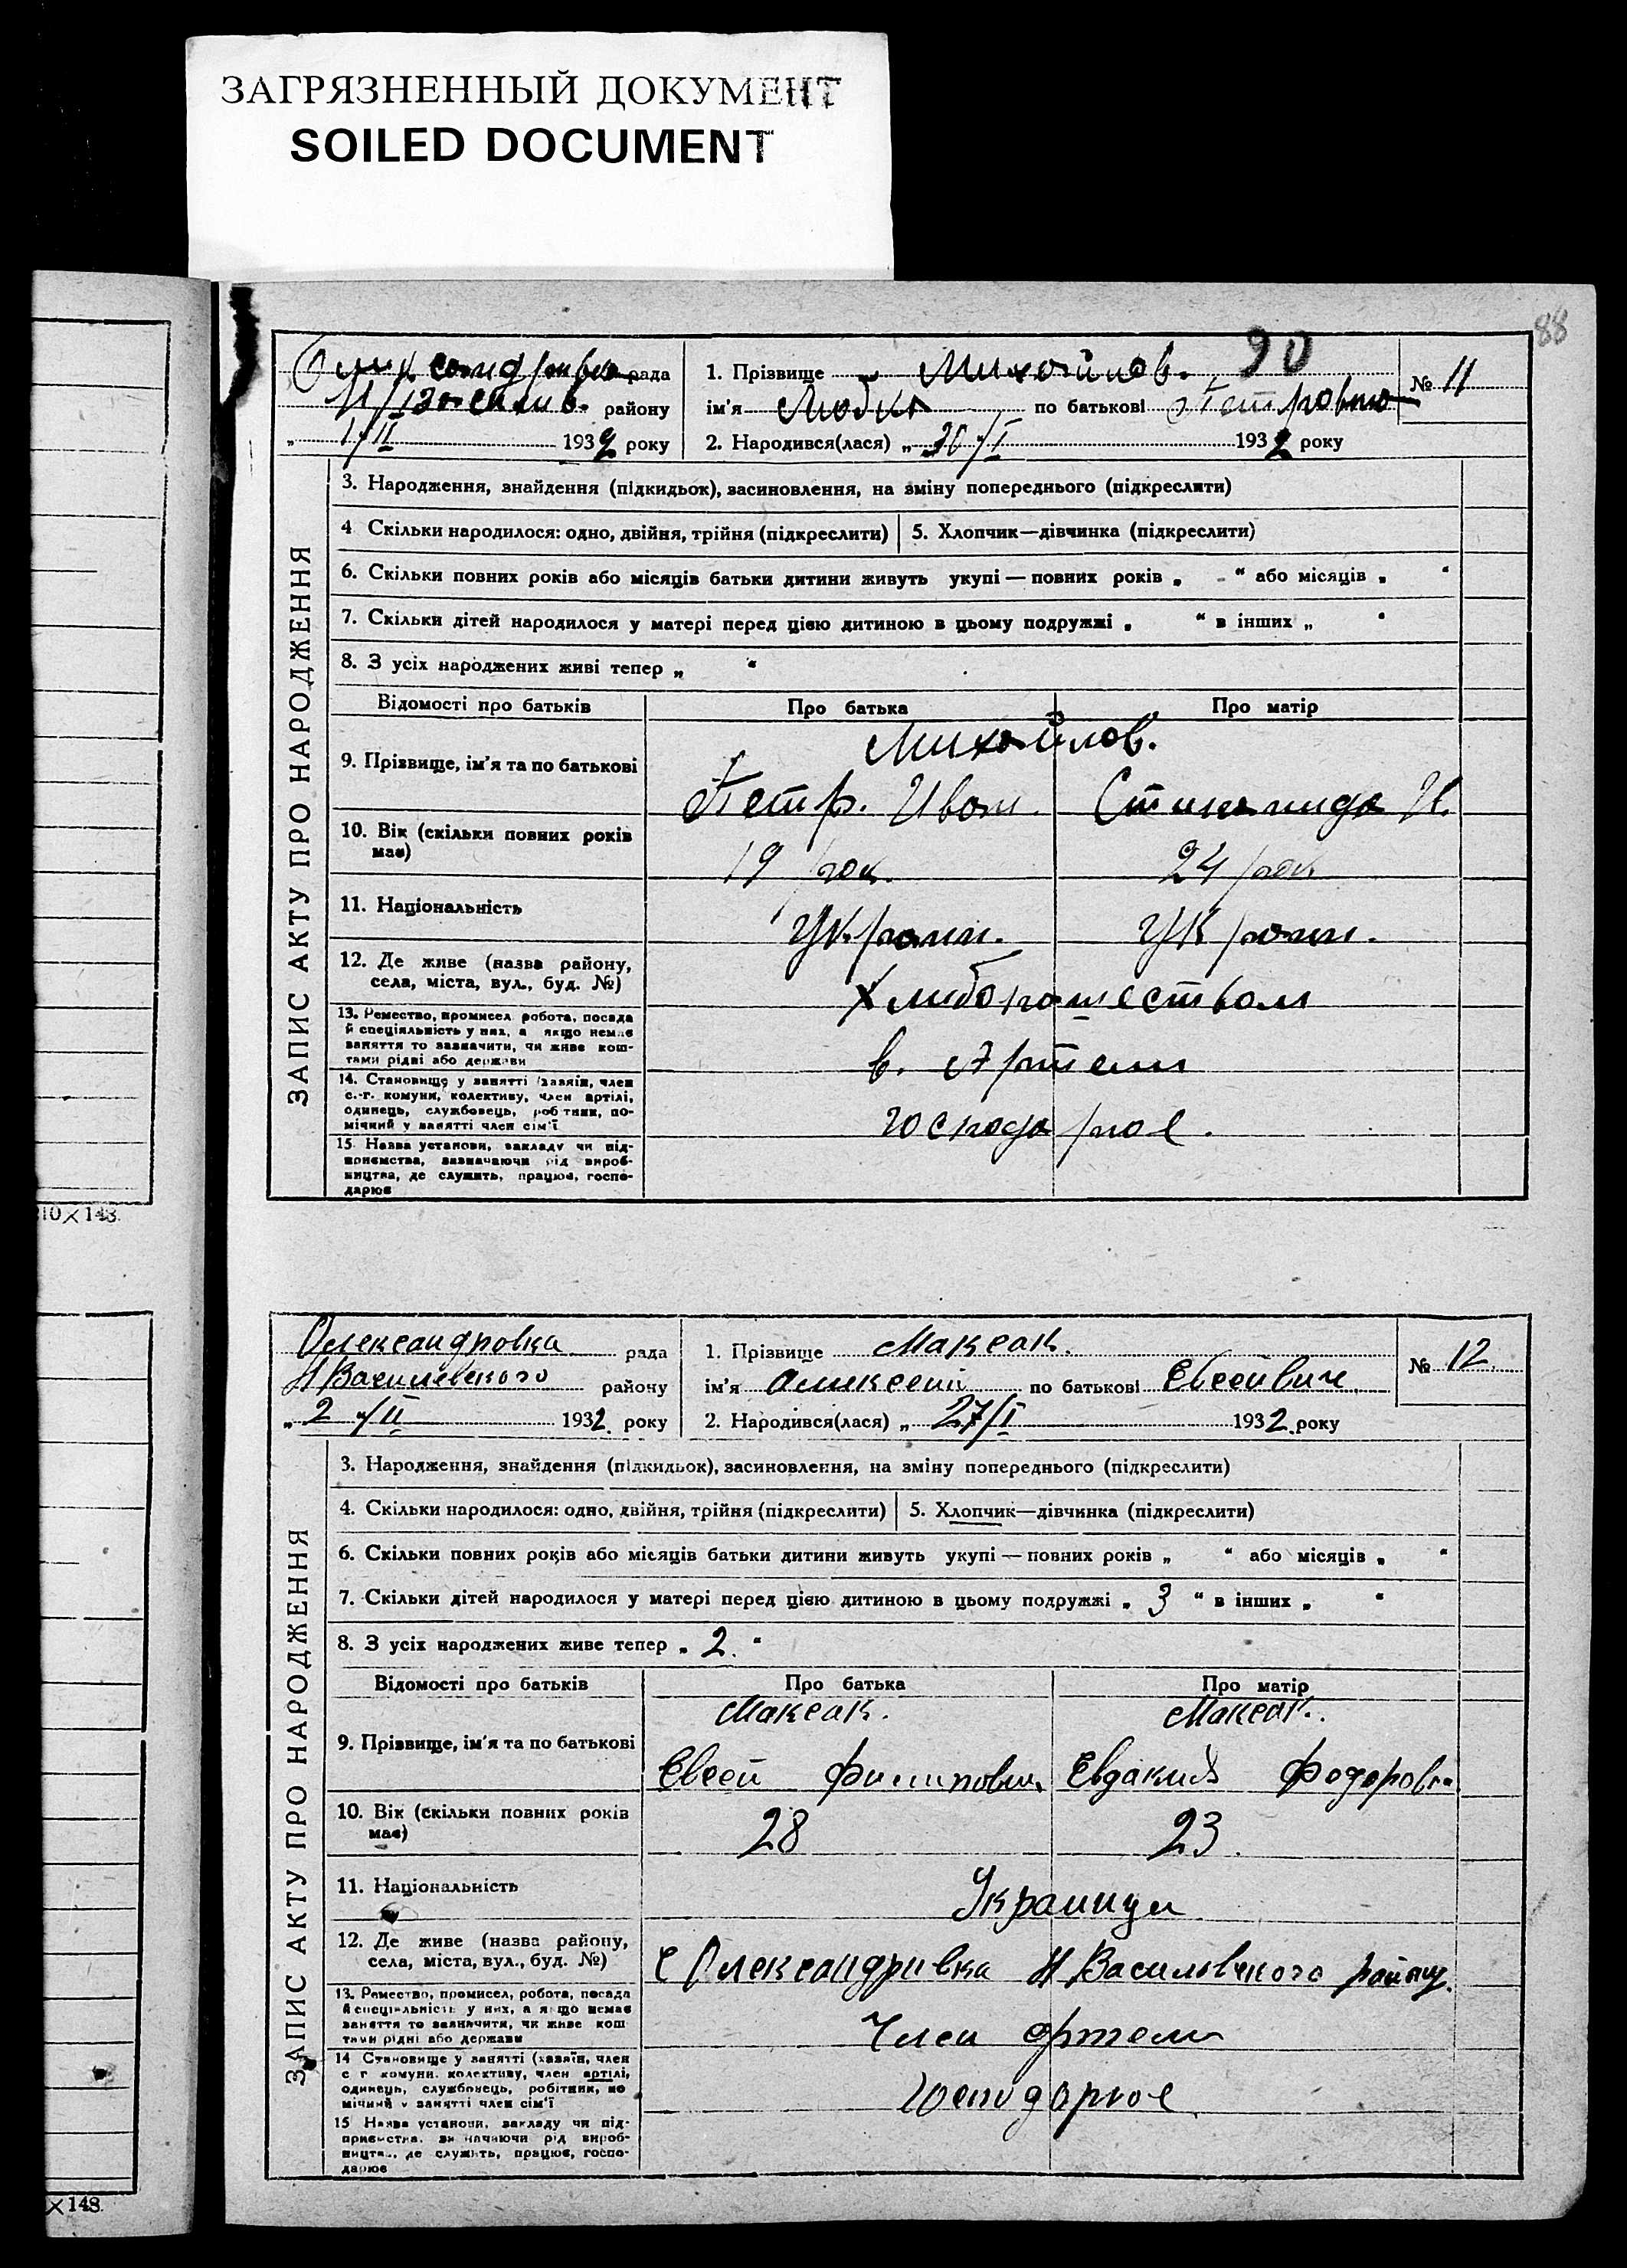 ЗАГРЯЗНЕННЫЙ ДОКУМЕНТ
SOILED DOCUMENT
88
90
рада
району
1/II 1932 року
1. Прізвище Михайлов.
ім'я Любка по батькові Петровна
2. Народився(лася) „ 30/I 1932 року
№ 11
ЗАПИС АКТУ ПРО НАРОДЖЕННЯ
3. Народження, знайдення (підкидьок), засиновлення, на зміну попереднього (підкреслити)
4 Скільки народилося: одно, двійня, трійня (підкреслити) 5. Хлопчик—дівчинка (підкреслити)
6. Скільки повних років або місяців батьки дитини живуть укупі — повних років „ “ або місяців „ “
7. Скільки дітей народилося у матері перед цією дитиною в цьому подружжі „ “ в інших „ “
8. З усіх народжених живі тепер „ “
Відомості про батьків Про батька Про матір
9. Прізвище, ім'я та по батькові
Михайлов.
Петр. Иван.
10. Вік (скільки повних років
має)
19 рок. 24 рок
11. Національність
Украин. Украин.
12. Де живе (назва району,
села, міста, вул., буд. №)
13. Ремество, промисел, робота, посада
й спеціяльність у них, а якщо немає
заняття то зазначити, чи живе кош-
тами рідні або держави
в. Артели
14. Становище у занятті (хазяїн, член
с.-г. комуни, колективу, член артілі,
одинець, службовець, робітник, по-
мічний у занятті член сім'ї
господарює.
15. Назва установи, закладу чи під-
приємства, зазначаючи рід вироб-
ництва, де служить, працює, госпо-
дарює
10×148.
Олександровка рада
Н Василівського району
„ 2 /II 1932 року
1. Прізвище Максак.
ім'я Аликсеий по батькові Евсейвич
2. Народився(лася) „ 27/I 1932 року
№ 12
ЗАПИС АКТУ ПРО НАРОДЖЕННЯ
3. Народження, знайдення (підкидьок), засиновлення, на зміну попереднього (підкреслити)
4. Скільки народилося: одно, двійня, трійня (підкреслити) 5. Хлопчик—дівчинка (підкреслити)
6. Скільки повних років або місяців батьки дитини живуть укупі — повних років „ “ або місяців „ “
7. Скільки дітей народилося у матері перед цією дитиною в цьому подружжі „ 3 “ в інших „ “
8. З усіх народжених живе тепер „ 2. “
Відомості про батьків Про батька Про матір
Максак. Максак.
9. Прізвище, ім'я та по батькові
Евсей Филипович Евдакия Федоровна
10. Вік (скільки повних років
має)
28 23.
11. Національність
Украинци
12. Де живе (назва району,
села, міста, вул., буд. №)
С Олександривка Н Васильвского району.
13. Ремество, промисел, робота, посада
й спеціяльність у них, а якщо немає
заняття то зазначити, чи живе кош
тами рідні або держави
Член артели
14 Становище у занятті (хазяїн, член
с г комуни, колективу, член артілі,
одинець, службовець, робітник, по
мічний у занятті член сім'ї
господарює
15 Назва установи, закладу чи під-
приємства, зазначаючи рід вироб-
ництва, де служить, працює, госпо-
дарює
×148.